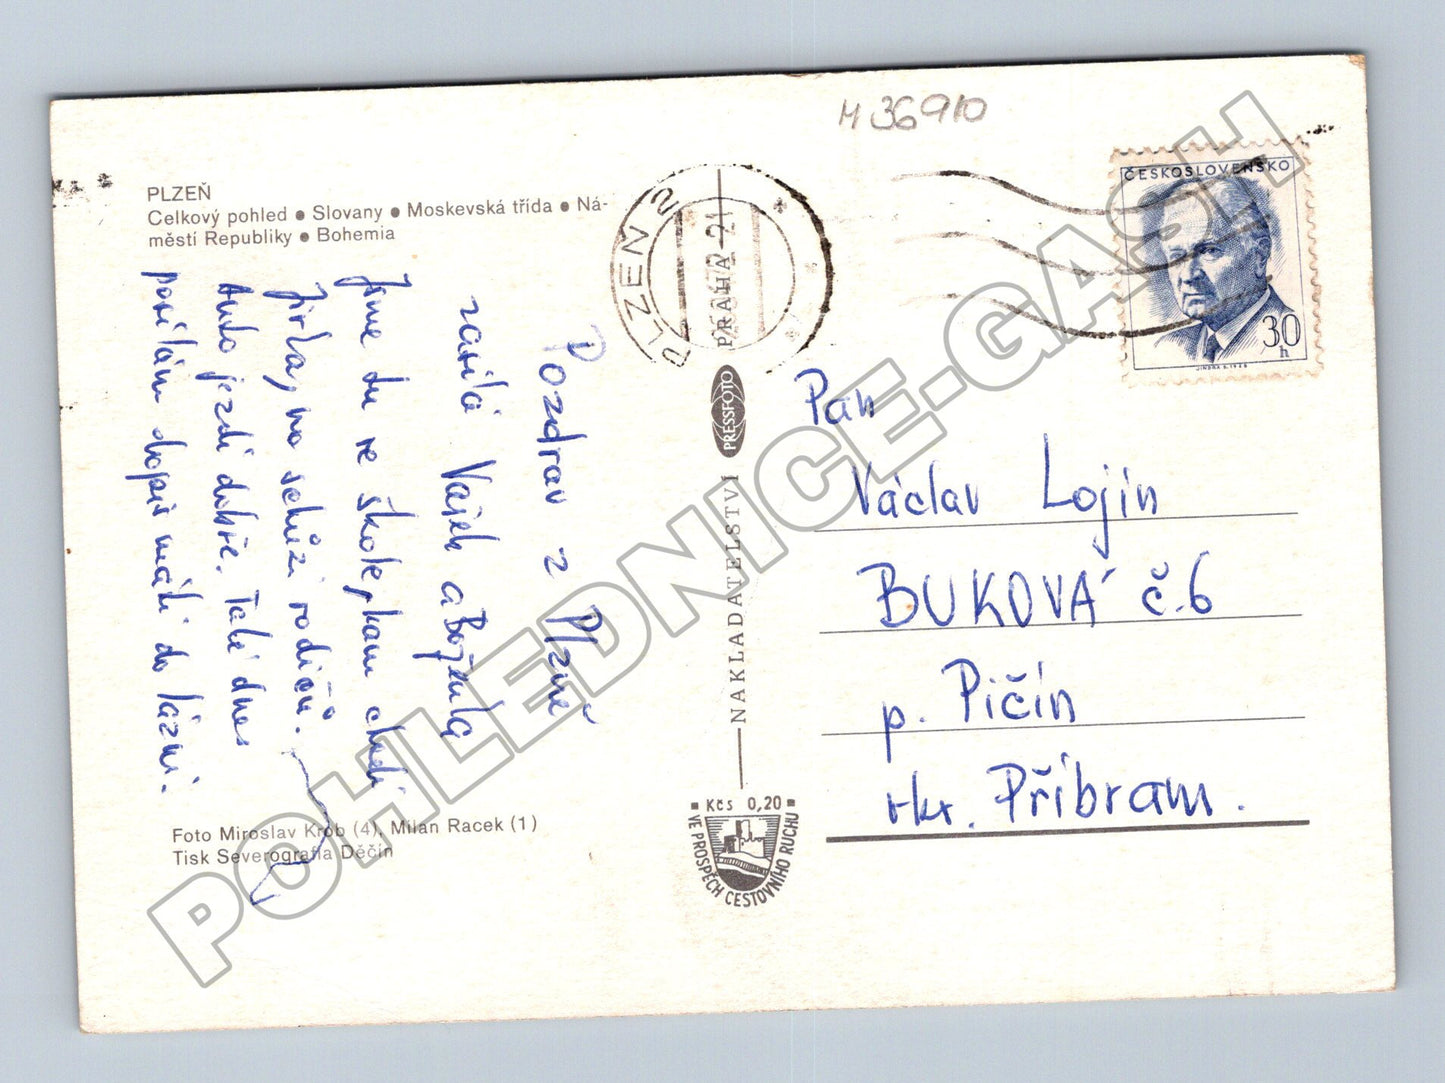 M 36910
PLZEŇ
Celkový pohled ● Slovany ● Moskevská třída ● Ná-
městí Republiky ● Bohemia
Pozdrav z Plzně
Vašek a Boženka
Jsme tu ve škole, kam chodí
Jirka, na schůzi rodičů.
Auto jezdí dobře. Také dnes
posílám dopis mádi do lázní.
Foto Miroslav Krob (4), Milan Racek (1)
Tisk Severografia Děčín
PLZEN 2
PRAHA
PRESSFOTO
NAKLADATELSTVÍ
Kčs 0,20
VE PROSPĚCH CESTOVNÍHO RUCHU
ČESKOSLOVENSKO
30 h
Pan
Václav Lojín
BUKOVÁ č.6
p. Pičín
okr. Příbram.
POHLEDNICE-GASH